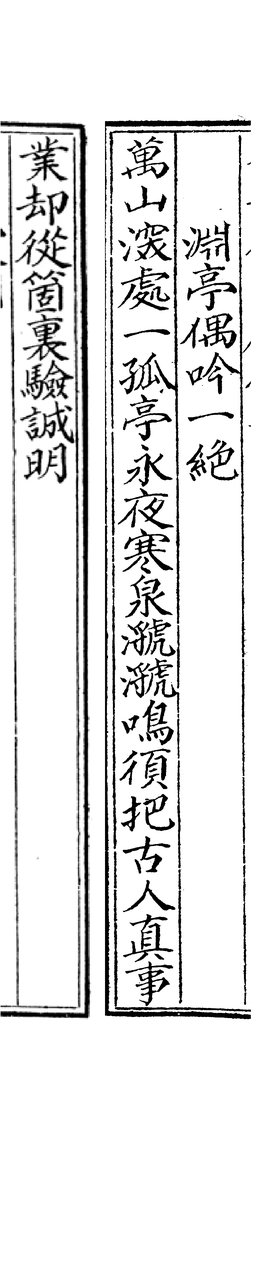 淵亭偶吟一絶
萬山深處一孤亭永夜寒泉㶁㶁鳴須把古人真事
業却從箇裏驗誠明